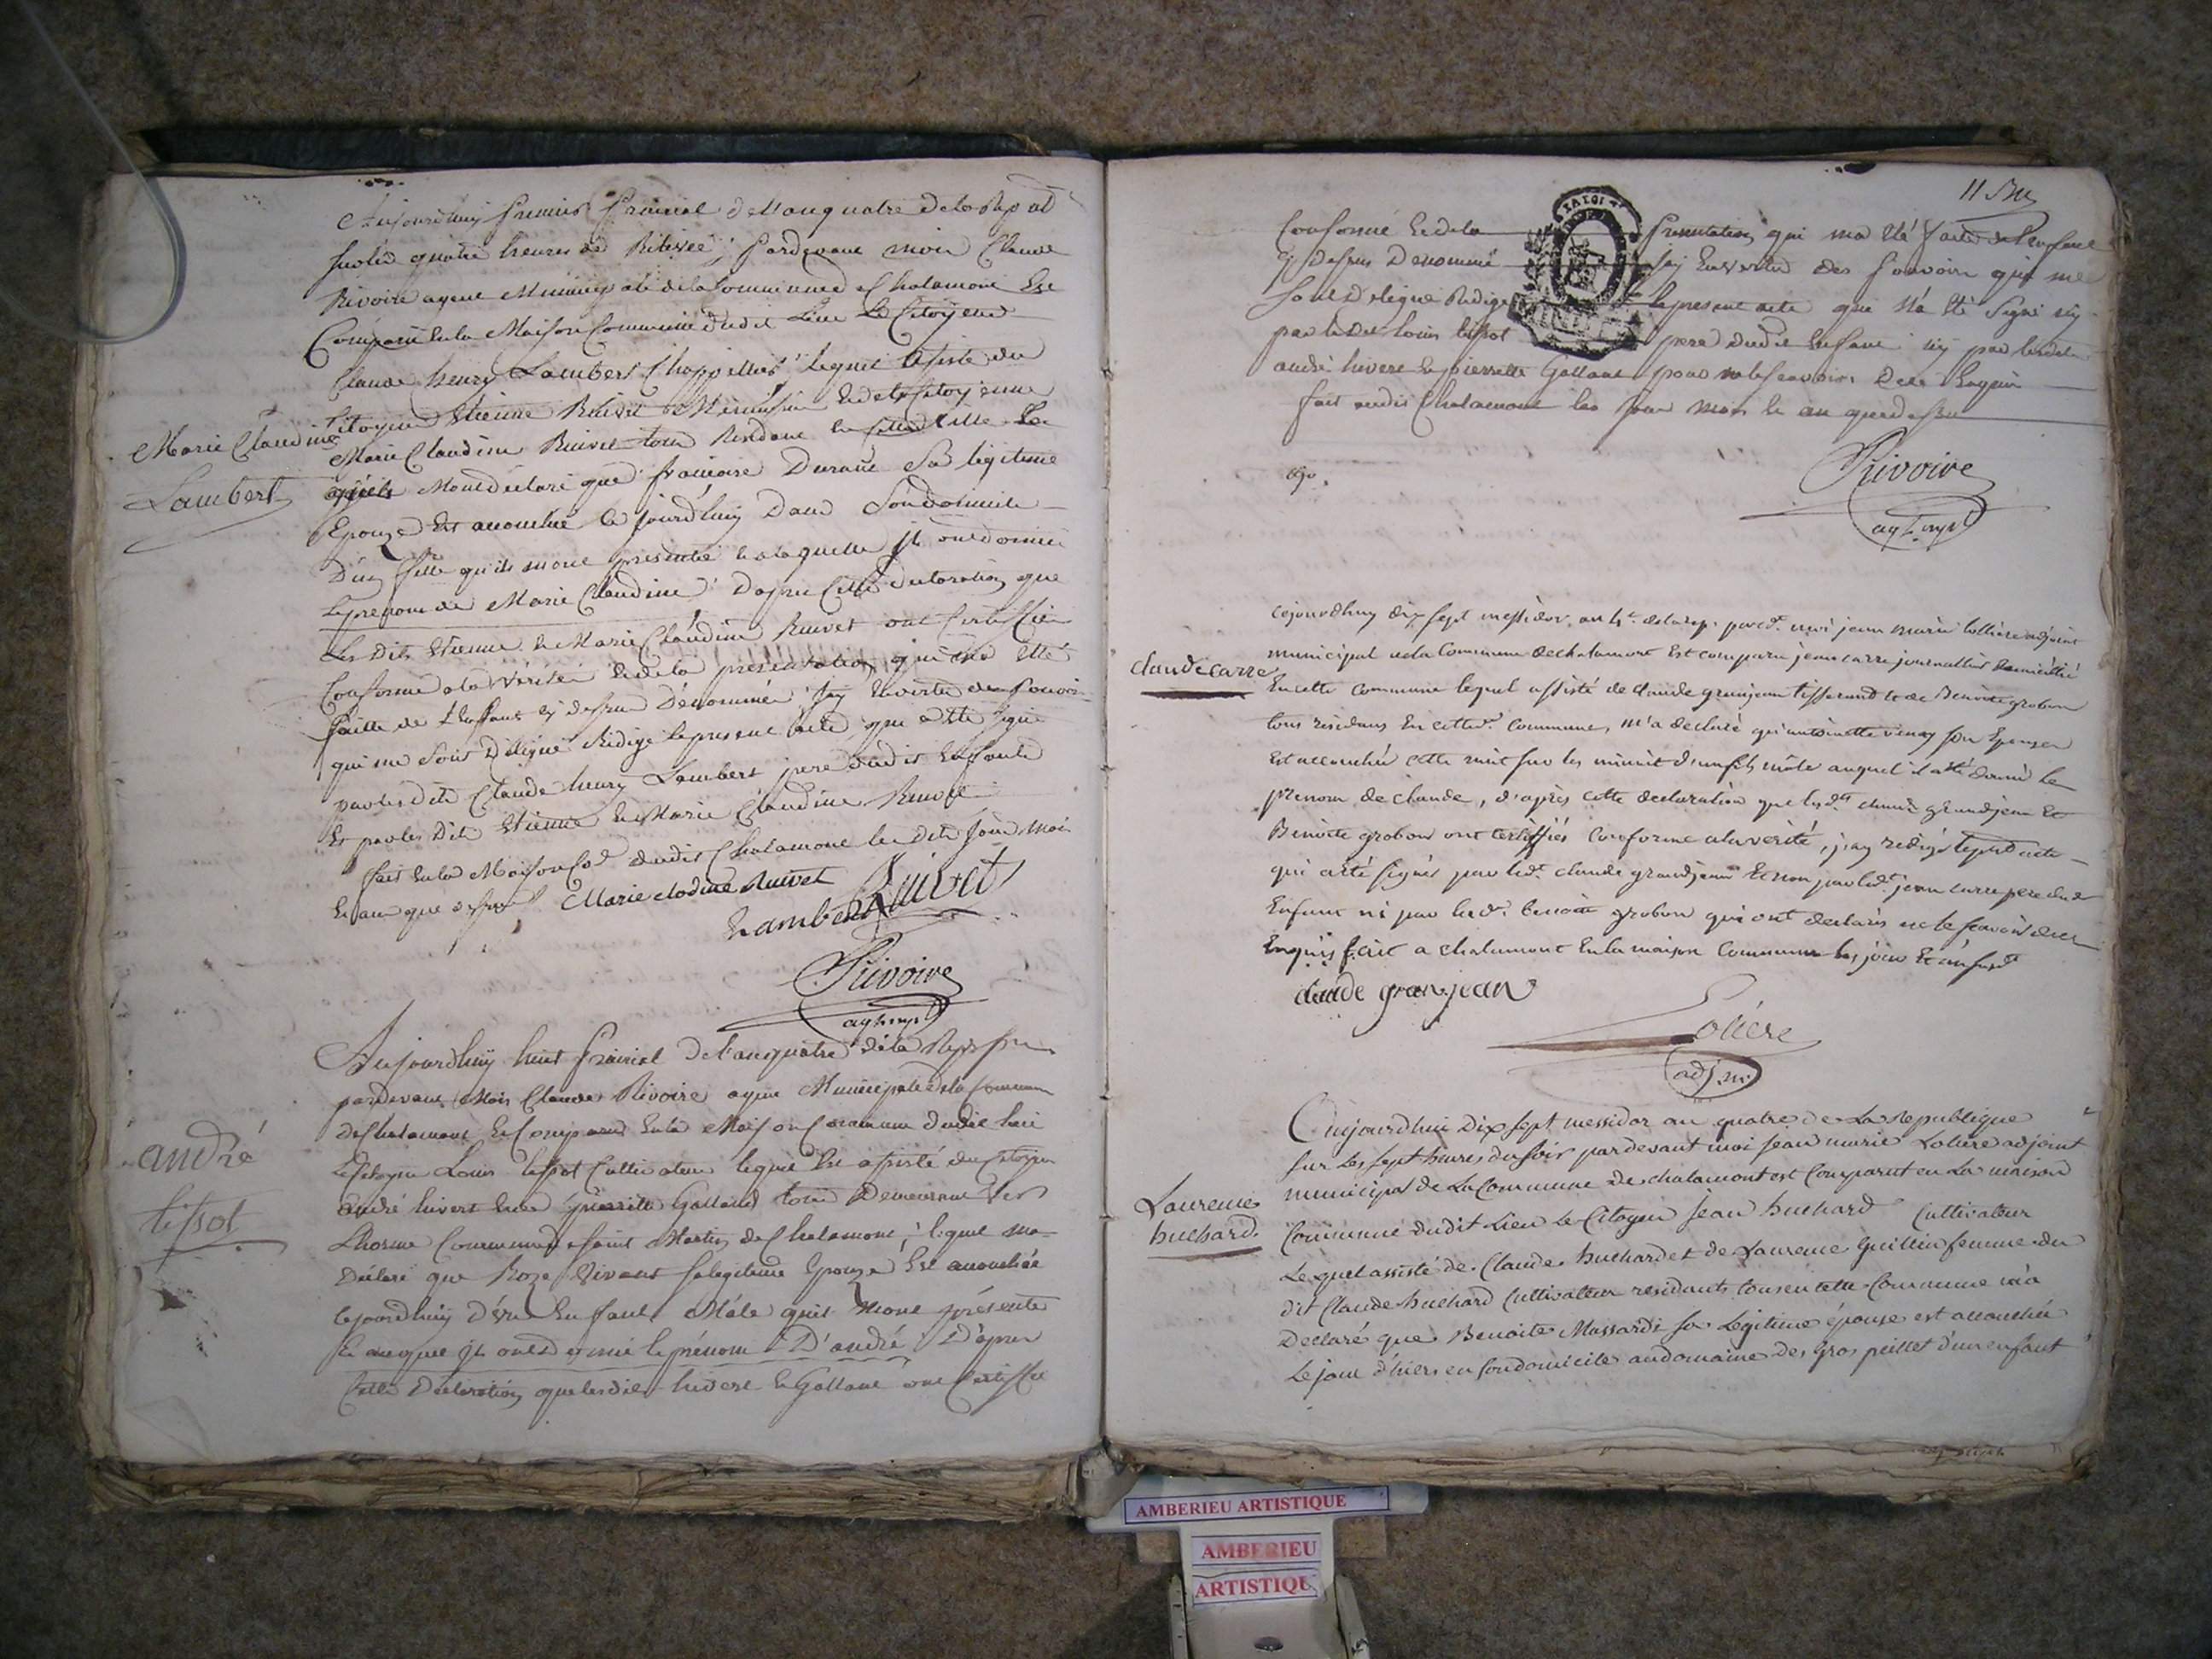 Marie Claudine
Lambert
Aujourdhuy premier prairial de l'an quatre de la Rep
sur les quatre heures de Relevée, pardevant moi Claude
Rivoire agent Municipal de la Commune de Chalamont Est
Comparu en la Maison Commune dudit Lieu Le Citoyen
Claude henry Lambert Chappellier lequel assisté du
Citoyen Etienne Ruivet et de la Citoyenne
Marie Claudine Ruivet tous Residant en cette Ville
Mont déclaré que françoise Durand Sa légitime
Epouze Est accouchée ce jourd'huy Dans Son domicile
D'une fille qu'ils mont présenté et a laquelle ils ont donné
le prenom de Marie Claudine D'apres Cette declaration que
Les dits Etienne et Marie Claudine Ruivet ont Certiffié
Conforme a la Vérité et de la presentation qui ma Eté
faitte de L'enfant cy dessus Dénommée j'ay En vertu des Pouvoirs
qui me Sont Délégué Rédigé le present acte qui a Eté Signé
par les dits Claude henry Lambert pere dudit Enfant
Et par les Dits Etienne et Marie Claudine Ruivet
fait en la Maison Cne dudit Chalamont les dits Jour mois
Et an que dessus Marie clodine Ruivet
Lambert Ruivet
Rivoire
ag mpl
andré
tissot
Aujourdhuy huit prairial de l'an quatre de la Rep
pardevant Moi Claude Rivoire agent Municipal de la Commune
de Chalamont Est Comparu en la Maison Commune dudit lieu
Le Citoyen Louis tissot Cultivateur lequel assisté du Citoyen
andré hivert et de pierrette Galland tous Demeurant
Commune de saint Martin de Chalamont, lequel ma
Déclaré que Roze Vivant sa legitime Epouze Est accouchée
cejourdhuy d'un Enfant Mâle qu'ils mont présenté
Et auquel ils ont donné le prénom D'andré D'apres
Cette Déclaration que lesdits hivert et Galland ont Certiffié
11
Conforme et de la presentation qui ma Eté faite de l'enfant
cy dessus Denommé j'ay En vertu des Pouvoirs qui me
Sont Délégué Rédigé le present acte qui n'a Eté Signé ny
par ledit Louis tissot pere dudit Enfant ny par lesdits
andré hivert et pierrette Galland pour ne le scavoir De ce Enquis
fait audit Chalamont les Jour Mois et an que dessus
Rivoire
agt mpl
claude carre
cejourdhuy dix sept messidor an 4e. de la rep. pard. moi jean marie lolliere adjoint
municipal de la Commune de chalamont Est comparu jean carre journallier domicilié
En cette commune lequel assisté de claude granjean tisserand et de Benoite grobon
tous residans En cette de. commune, m'a declaré qu'antoinette venay son Epouze
Est accouchée cette nuit sur les minuit d'un fils mâle auquel il a été donné le
prenom de claude, d'après cette declaration que lesdts claude grandjean Et
Benoite grobon ont certiffiés conforme a la verité, j'ay redigé le pnt acte
qui a été signé par led. claude grandjean Et non par led. jean carre pere dud
Enfant ni par lad. benoite grobon qui ont declarés ne le scavoir de ce
Enquis fait a chalamont En la maison Commune les jour Et an susd
claude granjean
Loliere
adj. m.
Laurence
buchard.
Aujourdhui Dix sept messidor an quatre de La republique
sur Les sept heures du soir pardevant moi jean marie Loliere adjoint
municipal de La Commune de chalamont est Comparut en La maison
Commune dudit Lieu Le Citoyen jean buchard Cultivateur
Lequel assisté de Claude buchard et de Laurence Guillin femme du
dit Claude buchard Cultivateur residants tous en cette Commune m'a
Declaré que Benoite Massardi sa Légitime épouse est accouchée
Le jour d'hiers en son domicile au domaine des gros peillet d'un enfant
AMBERIEU ARTISTIQUE
AMBERIEU
ARTISTIQUE